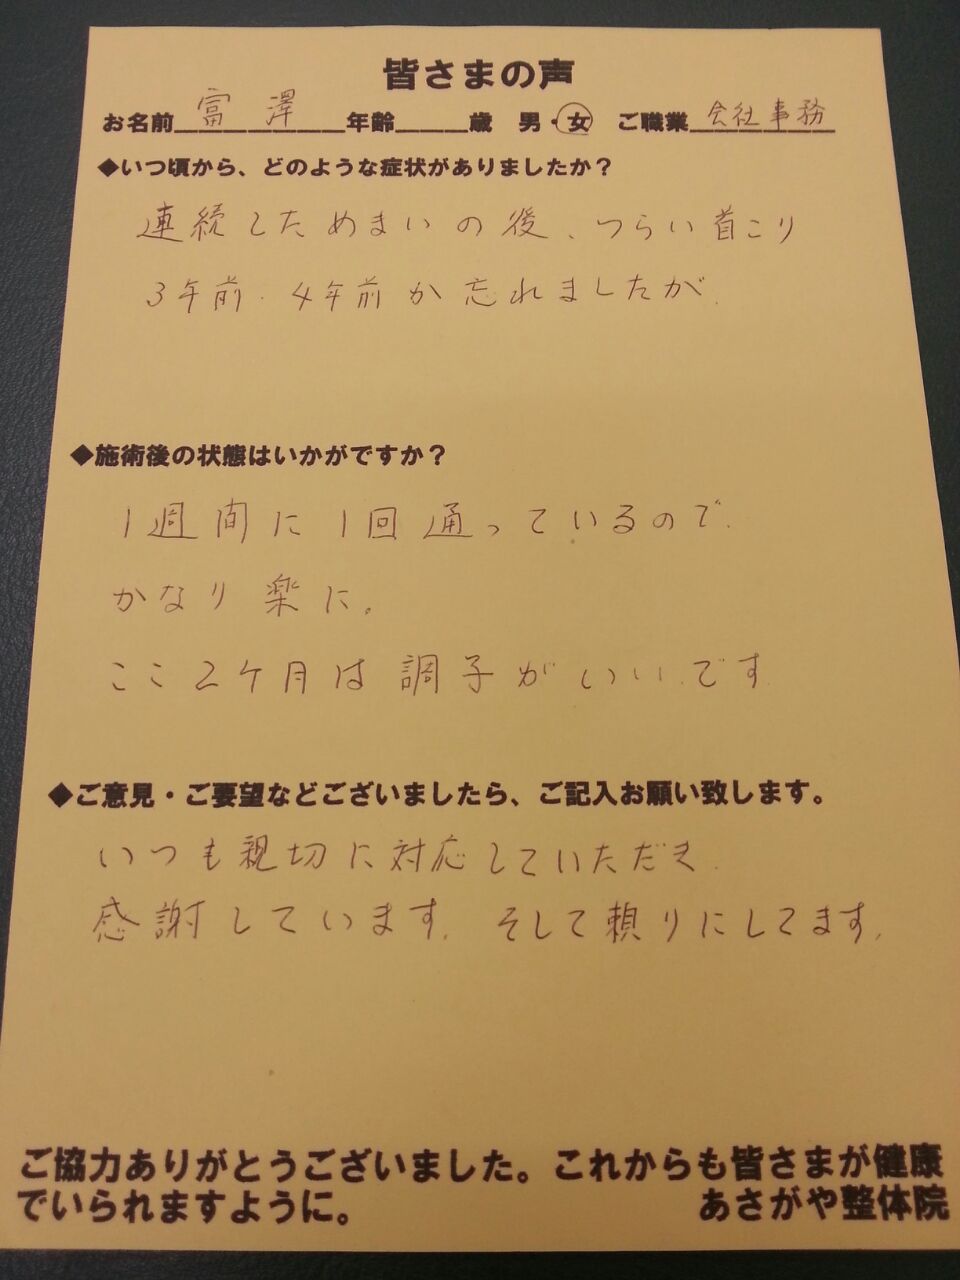 皆さまの声
お名前 富澤 年齢 歳 男・女 ご職業 会社事務
◆いつ頃から、どのような症状がありましたか？
連続しためまいの後、つらい首こり
3年前、4年前か忘れましたが、
◆施術後の状態はいかがですか？
1週間に1回通っているので、
かなり楽に。
ここ2ケ月は調子がいいです
◆ご意見・ご要望などございましたら、ご記入お願い致します。
いつも親切に対応していただき、
感謝しています。そして頼りにしてます。
ご協力ありがとうございました。これからも皆さまが健康
でいられますように。 あさがや整体院